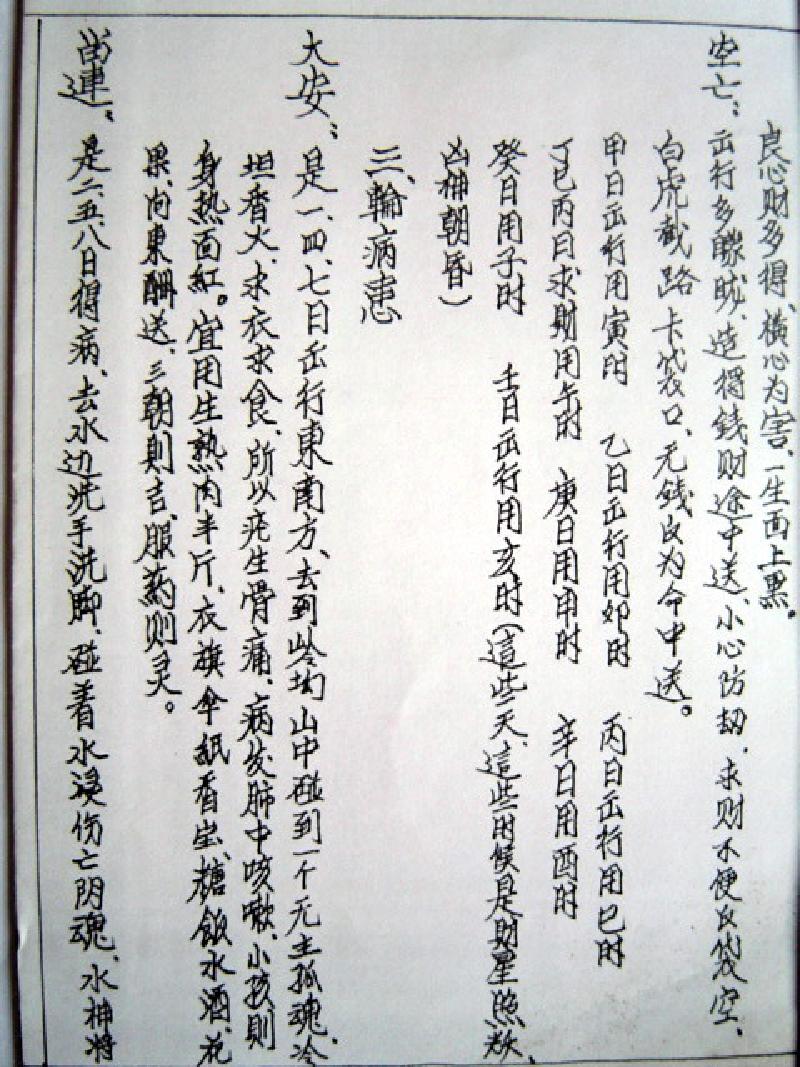 良心财多得、横心为害、一生面上黑。
空亡：出行多朦胧、造得錢财途中送、小心防劫、求财不便反袋空、
白虎截路卡袋口、无錢反为命中送。
甲日出行用寅时 乙日出行用卯时 丙日出行用巳时
丁巳丙日求财用午时 庚日用申时 辛日用酉时
癸日用子时 壬日出行用亥时（這些天、這些时候是财星照然、
凶神朝昏）
三、輪病患
大安：是一、四、七日出行東南方、去到岭坳山中碰到一个无主孤魂、冷
坦香火、求衣求食、所以疟生骨痛、病发肺中咳嗽、小孩则
身热面紅。宜用生熟肉半斤、衣旗伞紙香宝、糖飯水酒、花
果、向東酬送、三朝則吉、服葯则灵。
畄連：是二、五、八日得病、去水边洗手洗脚、碰着水浸伤亡阴魂、水神将